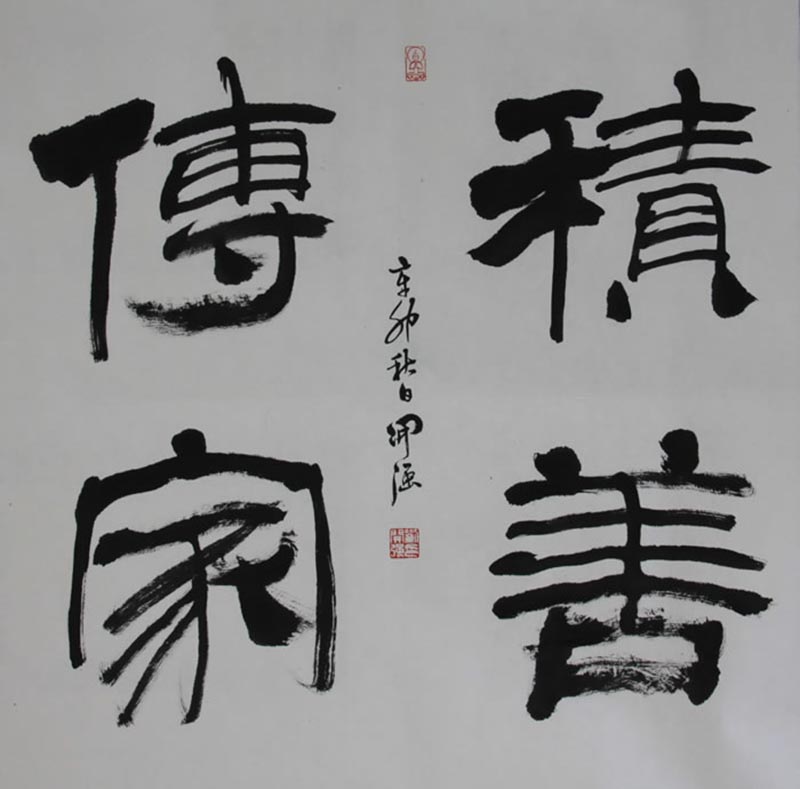 積善
傳家
辛卯秋日開强